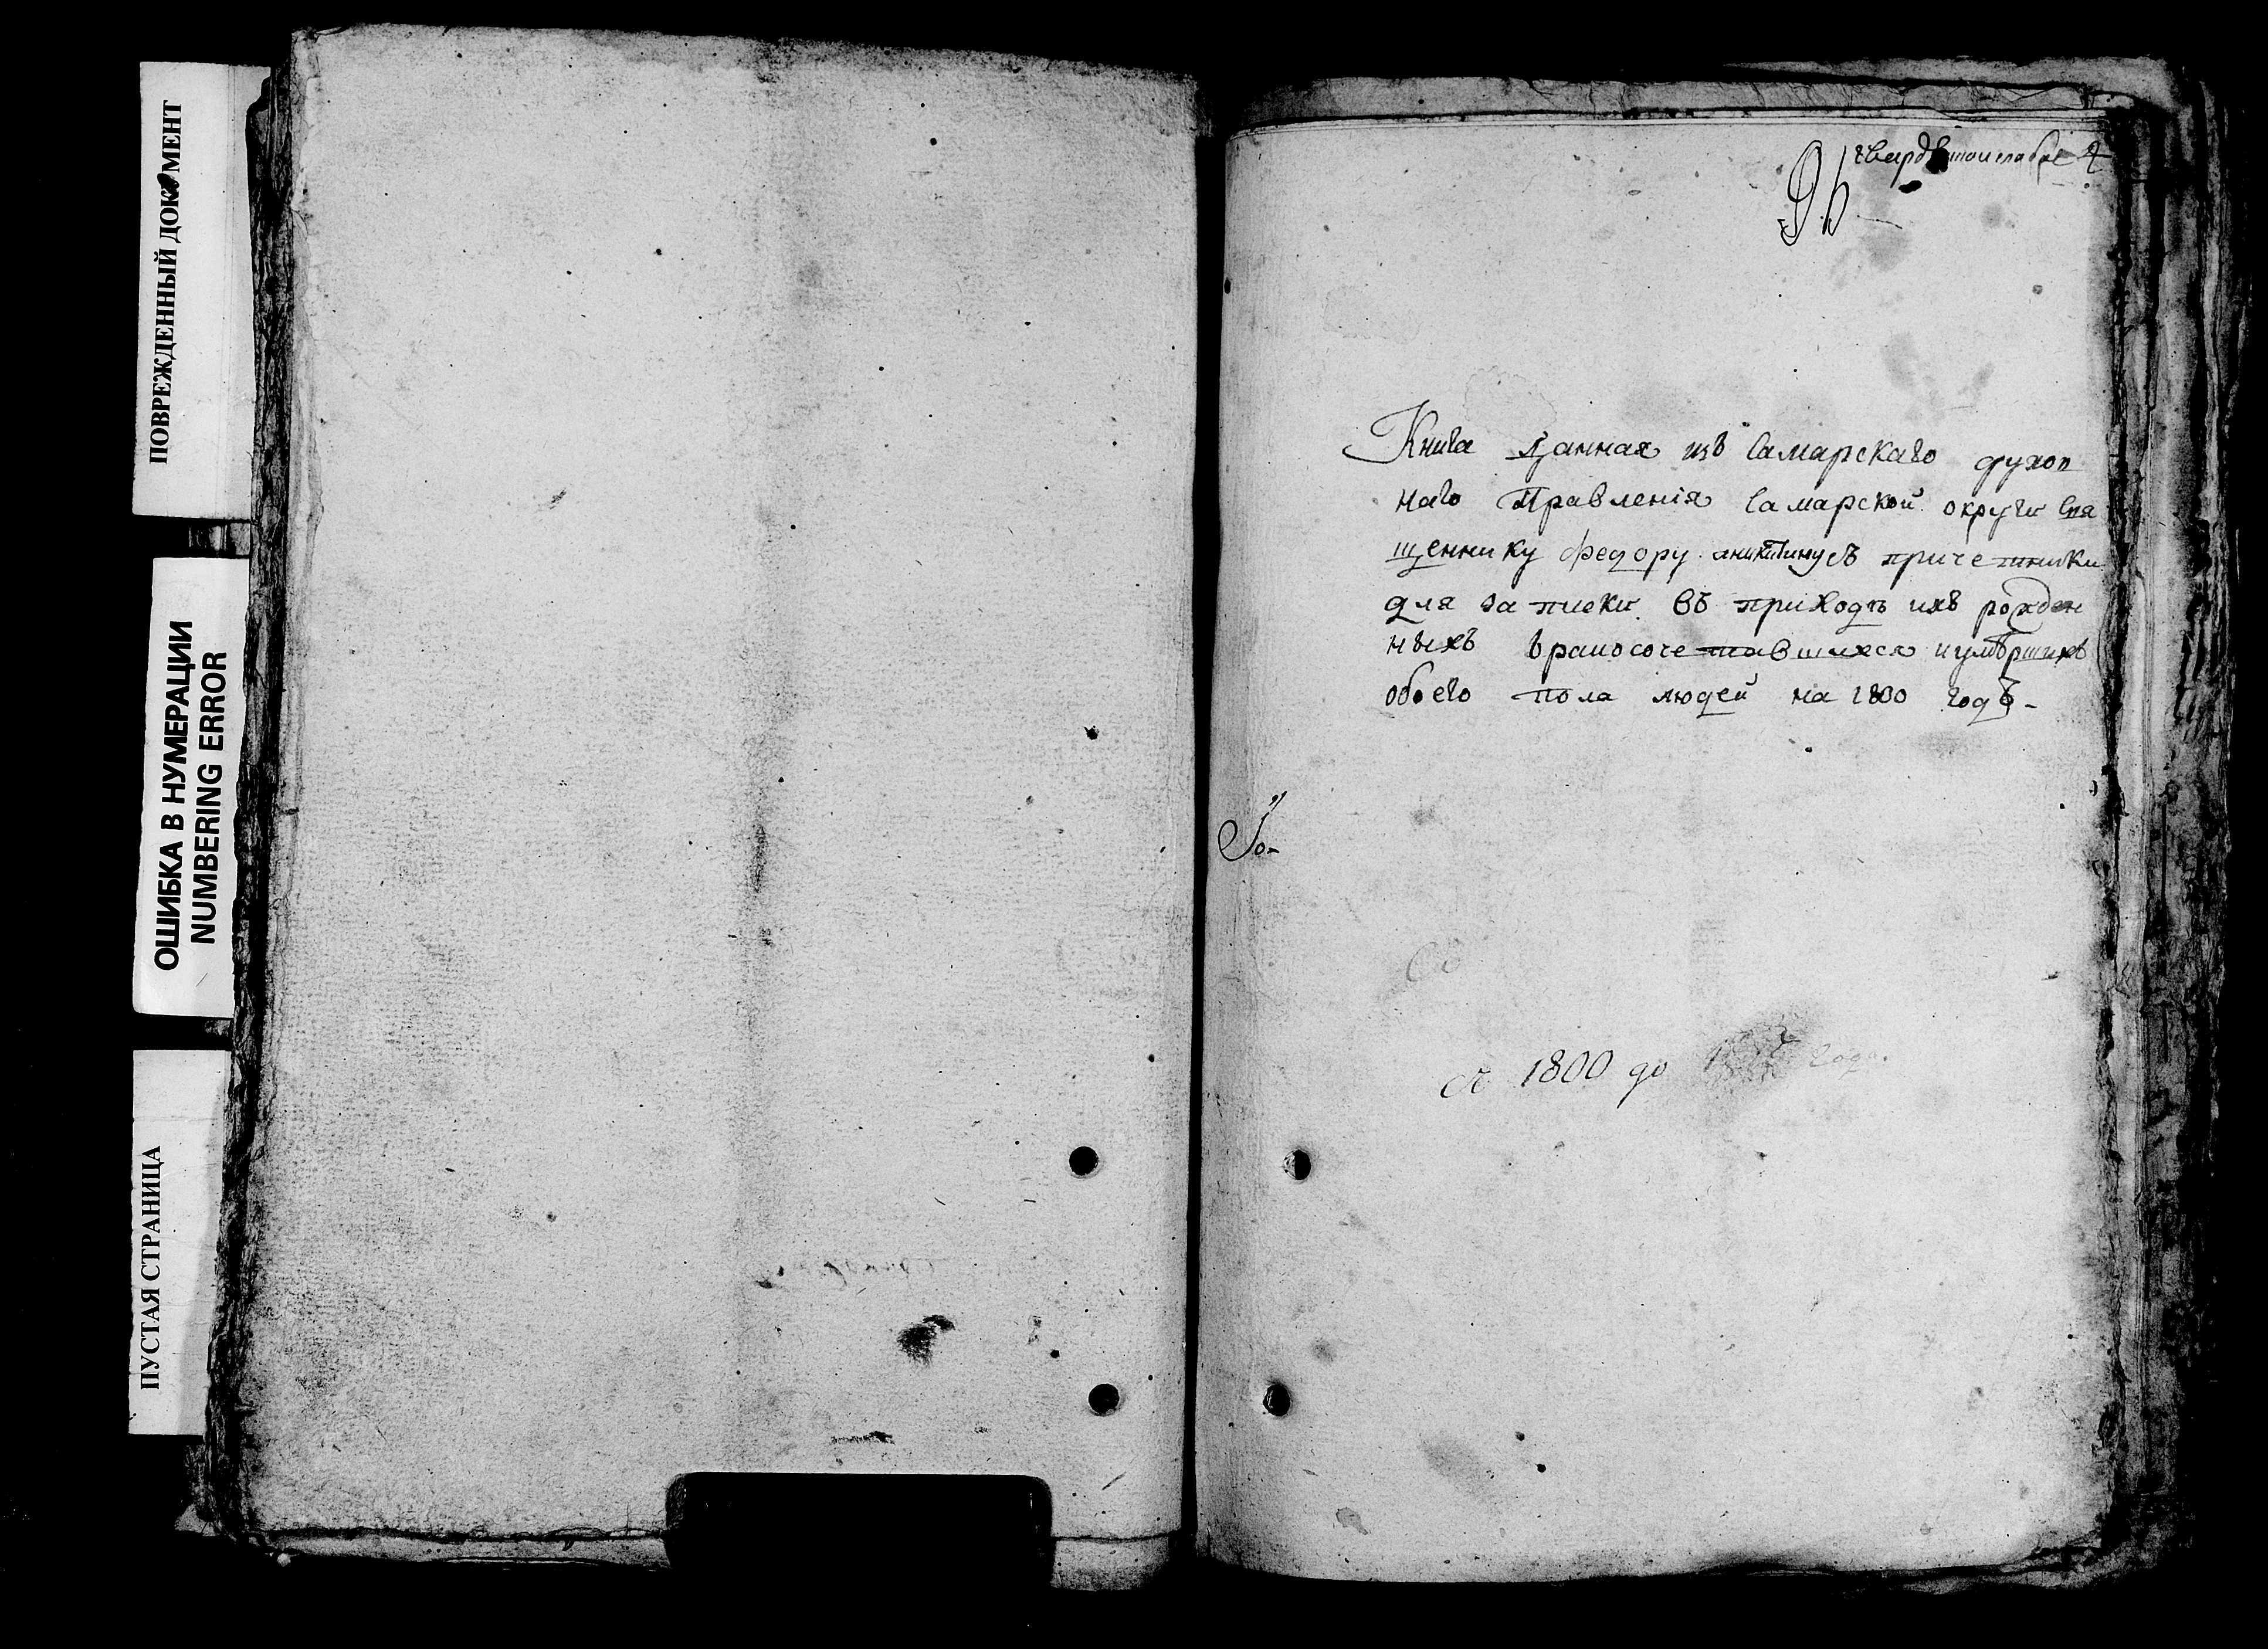 ПОВРЕЖДЕННЫЙ ДОКУМЕНТ
ОШИБКА В НУМЕРАЦИИ
NUMBERING ERROR
ПУСТАЯ СТРАНИЦА
Книга данная изъ Самарскаго духов
наго Правленія Самарской округи свя
щеннику Федору Аникитину съ причетники
для записки въ приходѣ ихъ рожден
ныхъ бракосочетавшихся и умѣршихъ
обоего пола людей на 1800 годъ.
съ 1800 до
года.